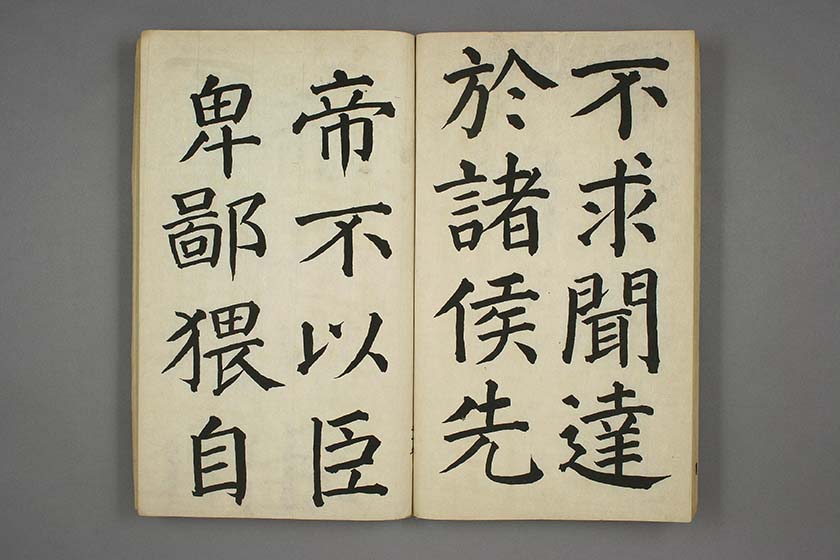 不求聞達
於諸侯先
帝不以臣
卑鄙猥自